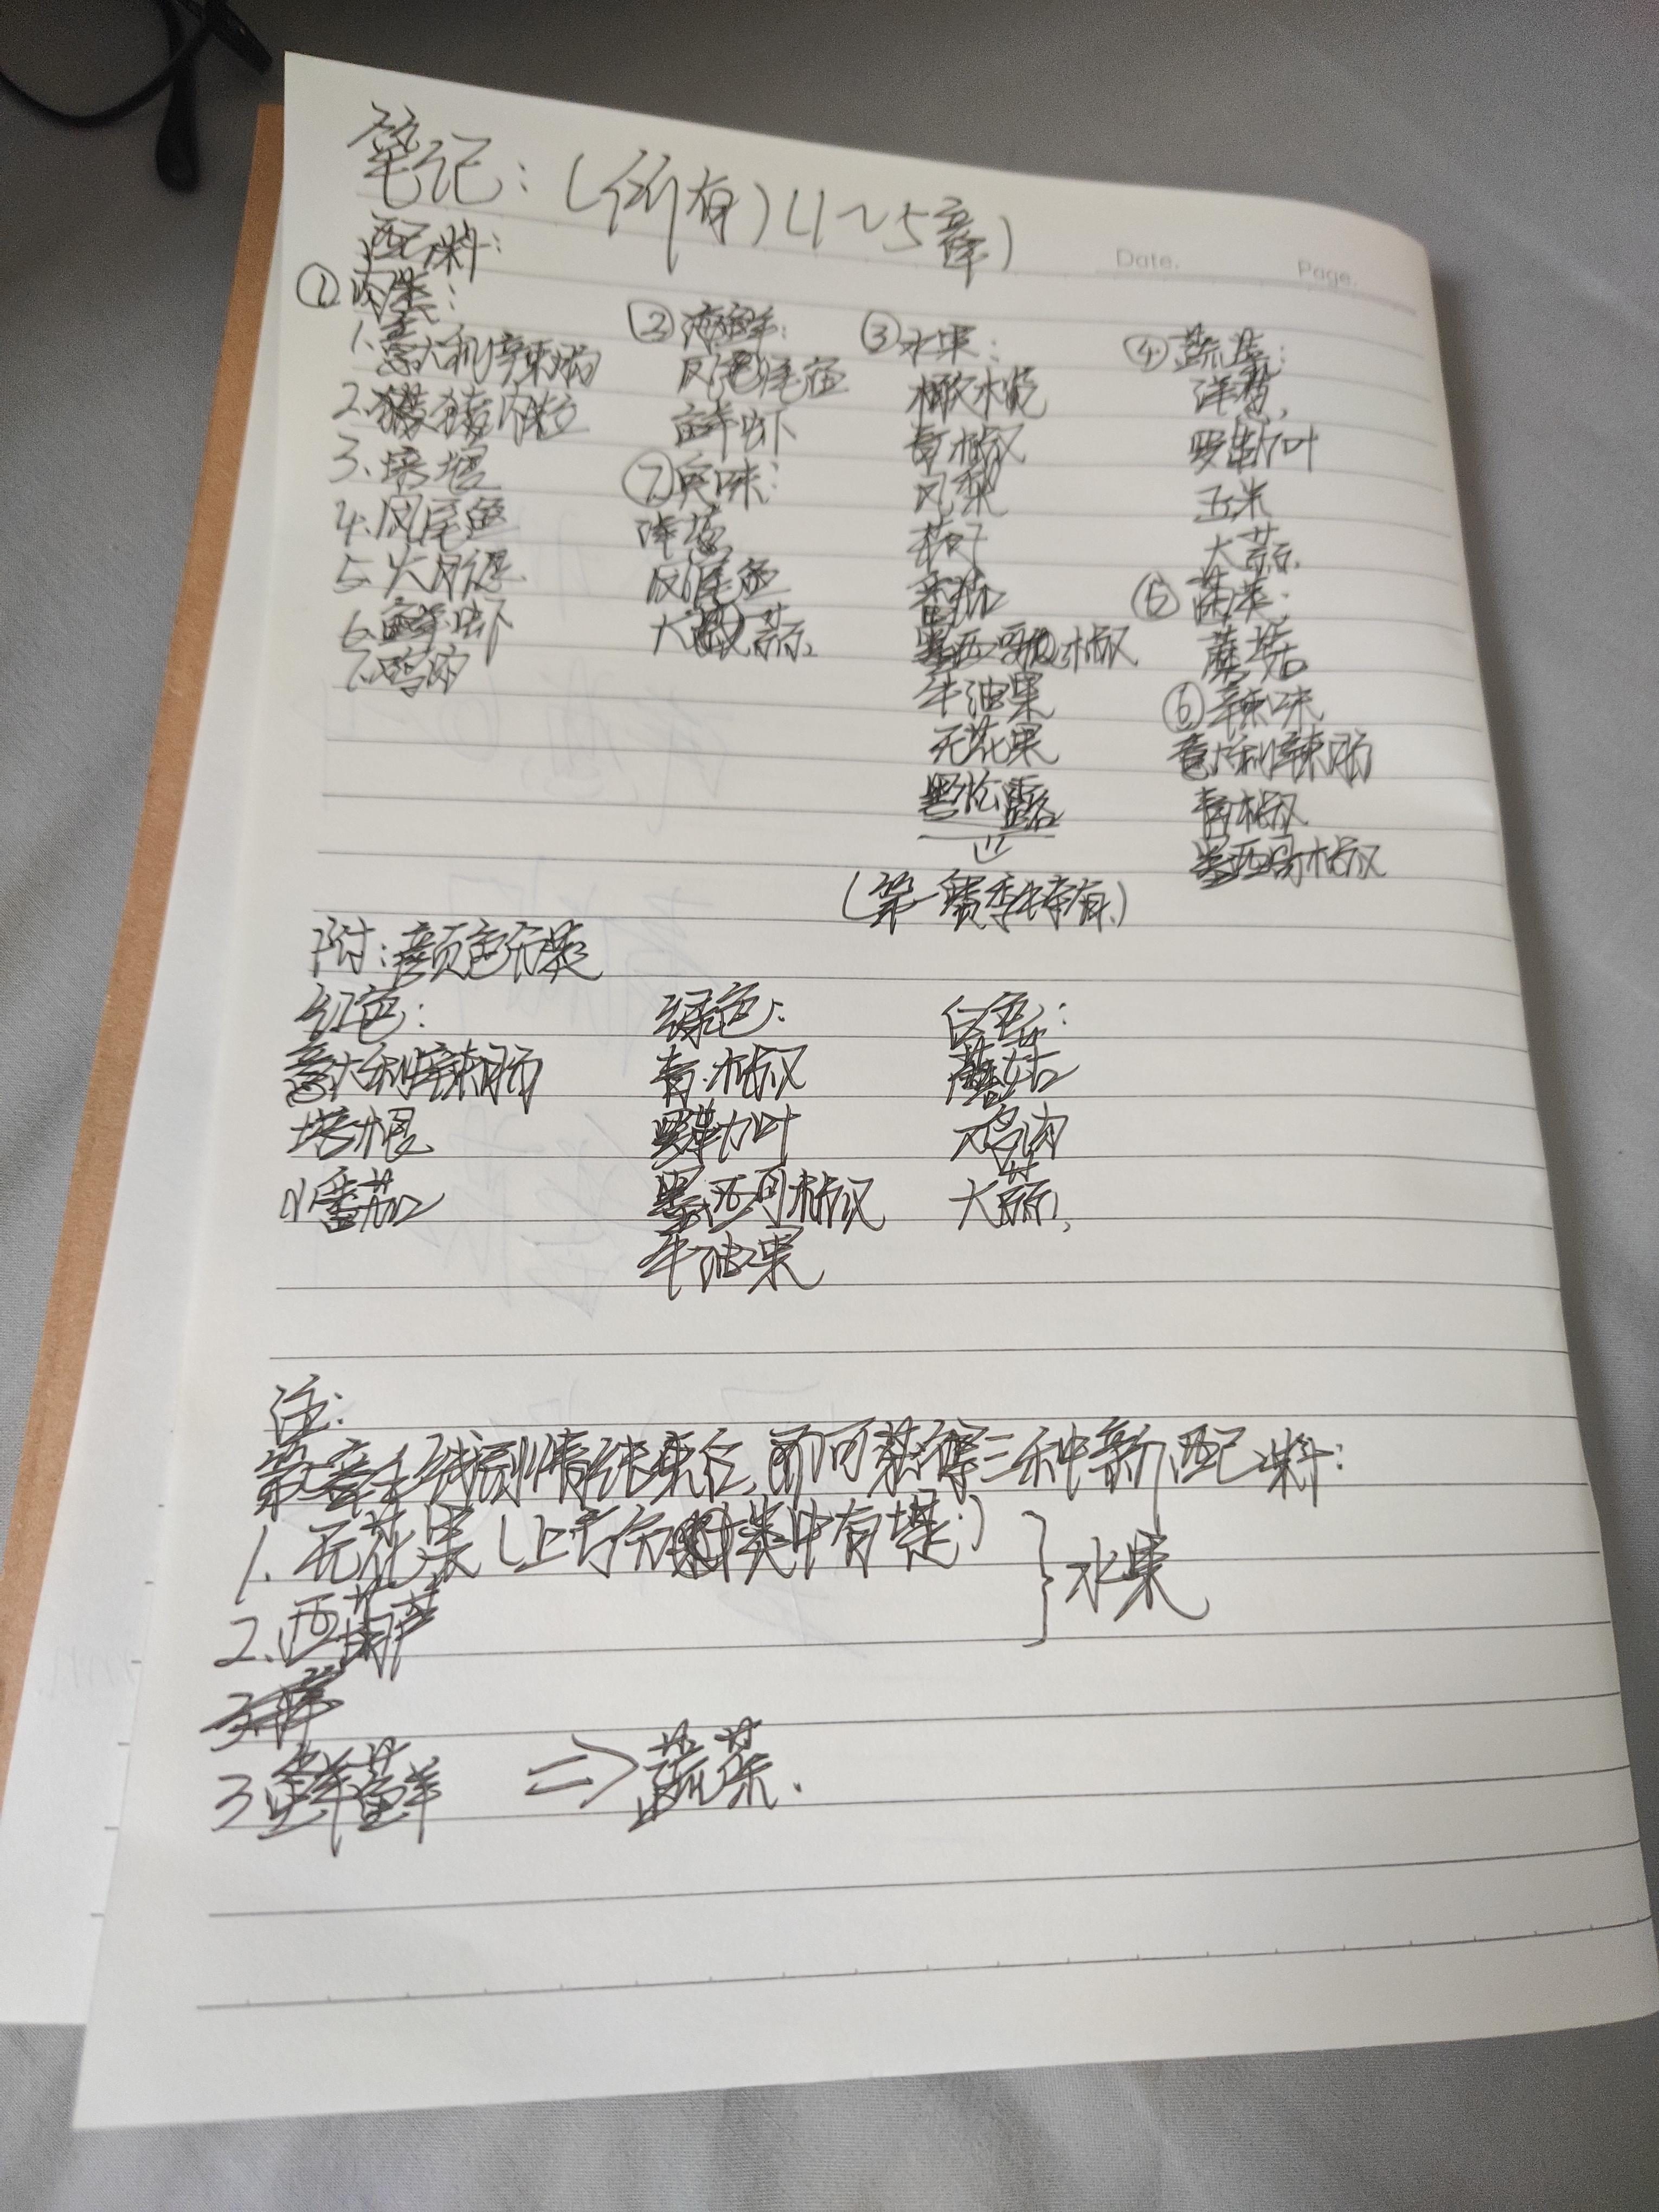 笔记：（所有）（1~5章）
Date.
Page.
配料：
① 肉类：
1. 意大利辣肠
2. 猪肉粒
3. 培根
4. 凤尾鱼
5. 火腿
6. 鲜虾
7. 鸡肉
② 海鲜：
凤尾鱼
鲜虾
⑦ 臭味：
洋葱
凤尾鱼
大蒜
③ 水果：
橄榄
青椒
凤梨
茄子
番茄
墨西哥椒
牛油果
无花果
黑松露
（第一赛季特有）
④ 蔬菜：
洋葱
罗勒叶
玉米
大蒜
⑤ 菌类：
蘑菇
⑥ 辣味
意大利辣肠
青椒
墨西哥椒
附：颜色分类
红色：
意大利辣肠
培根
番茄
绿色：
青椒
罗勒叶
墨西哥椒
牛油果
白色：
蘑菇
鸡肉
大蒜
注：
第章主线剧情结束后，即可获得三种新配料：
1. 无花果（上方分类中有提）
2. 西葫芦
} 水果
3
3 ⇒ 蔬菜.